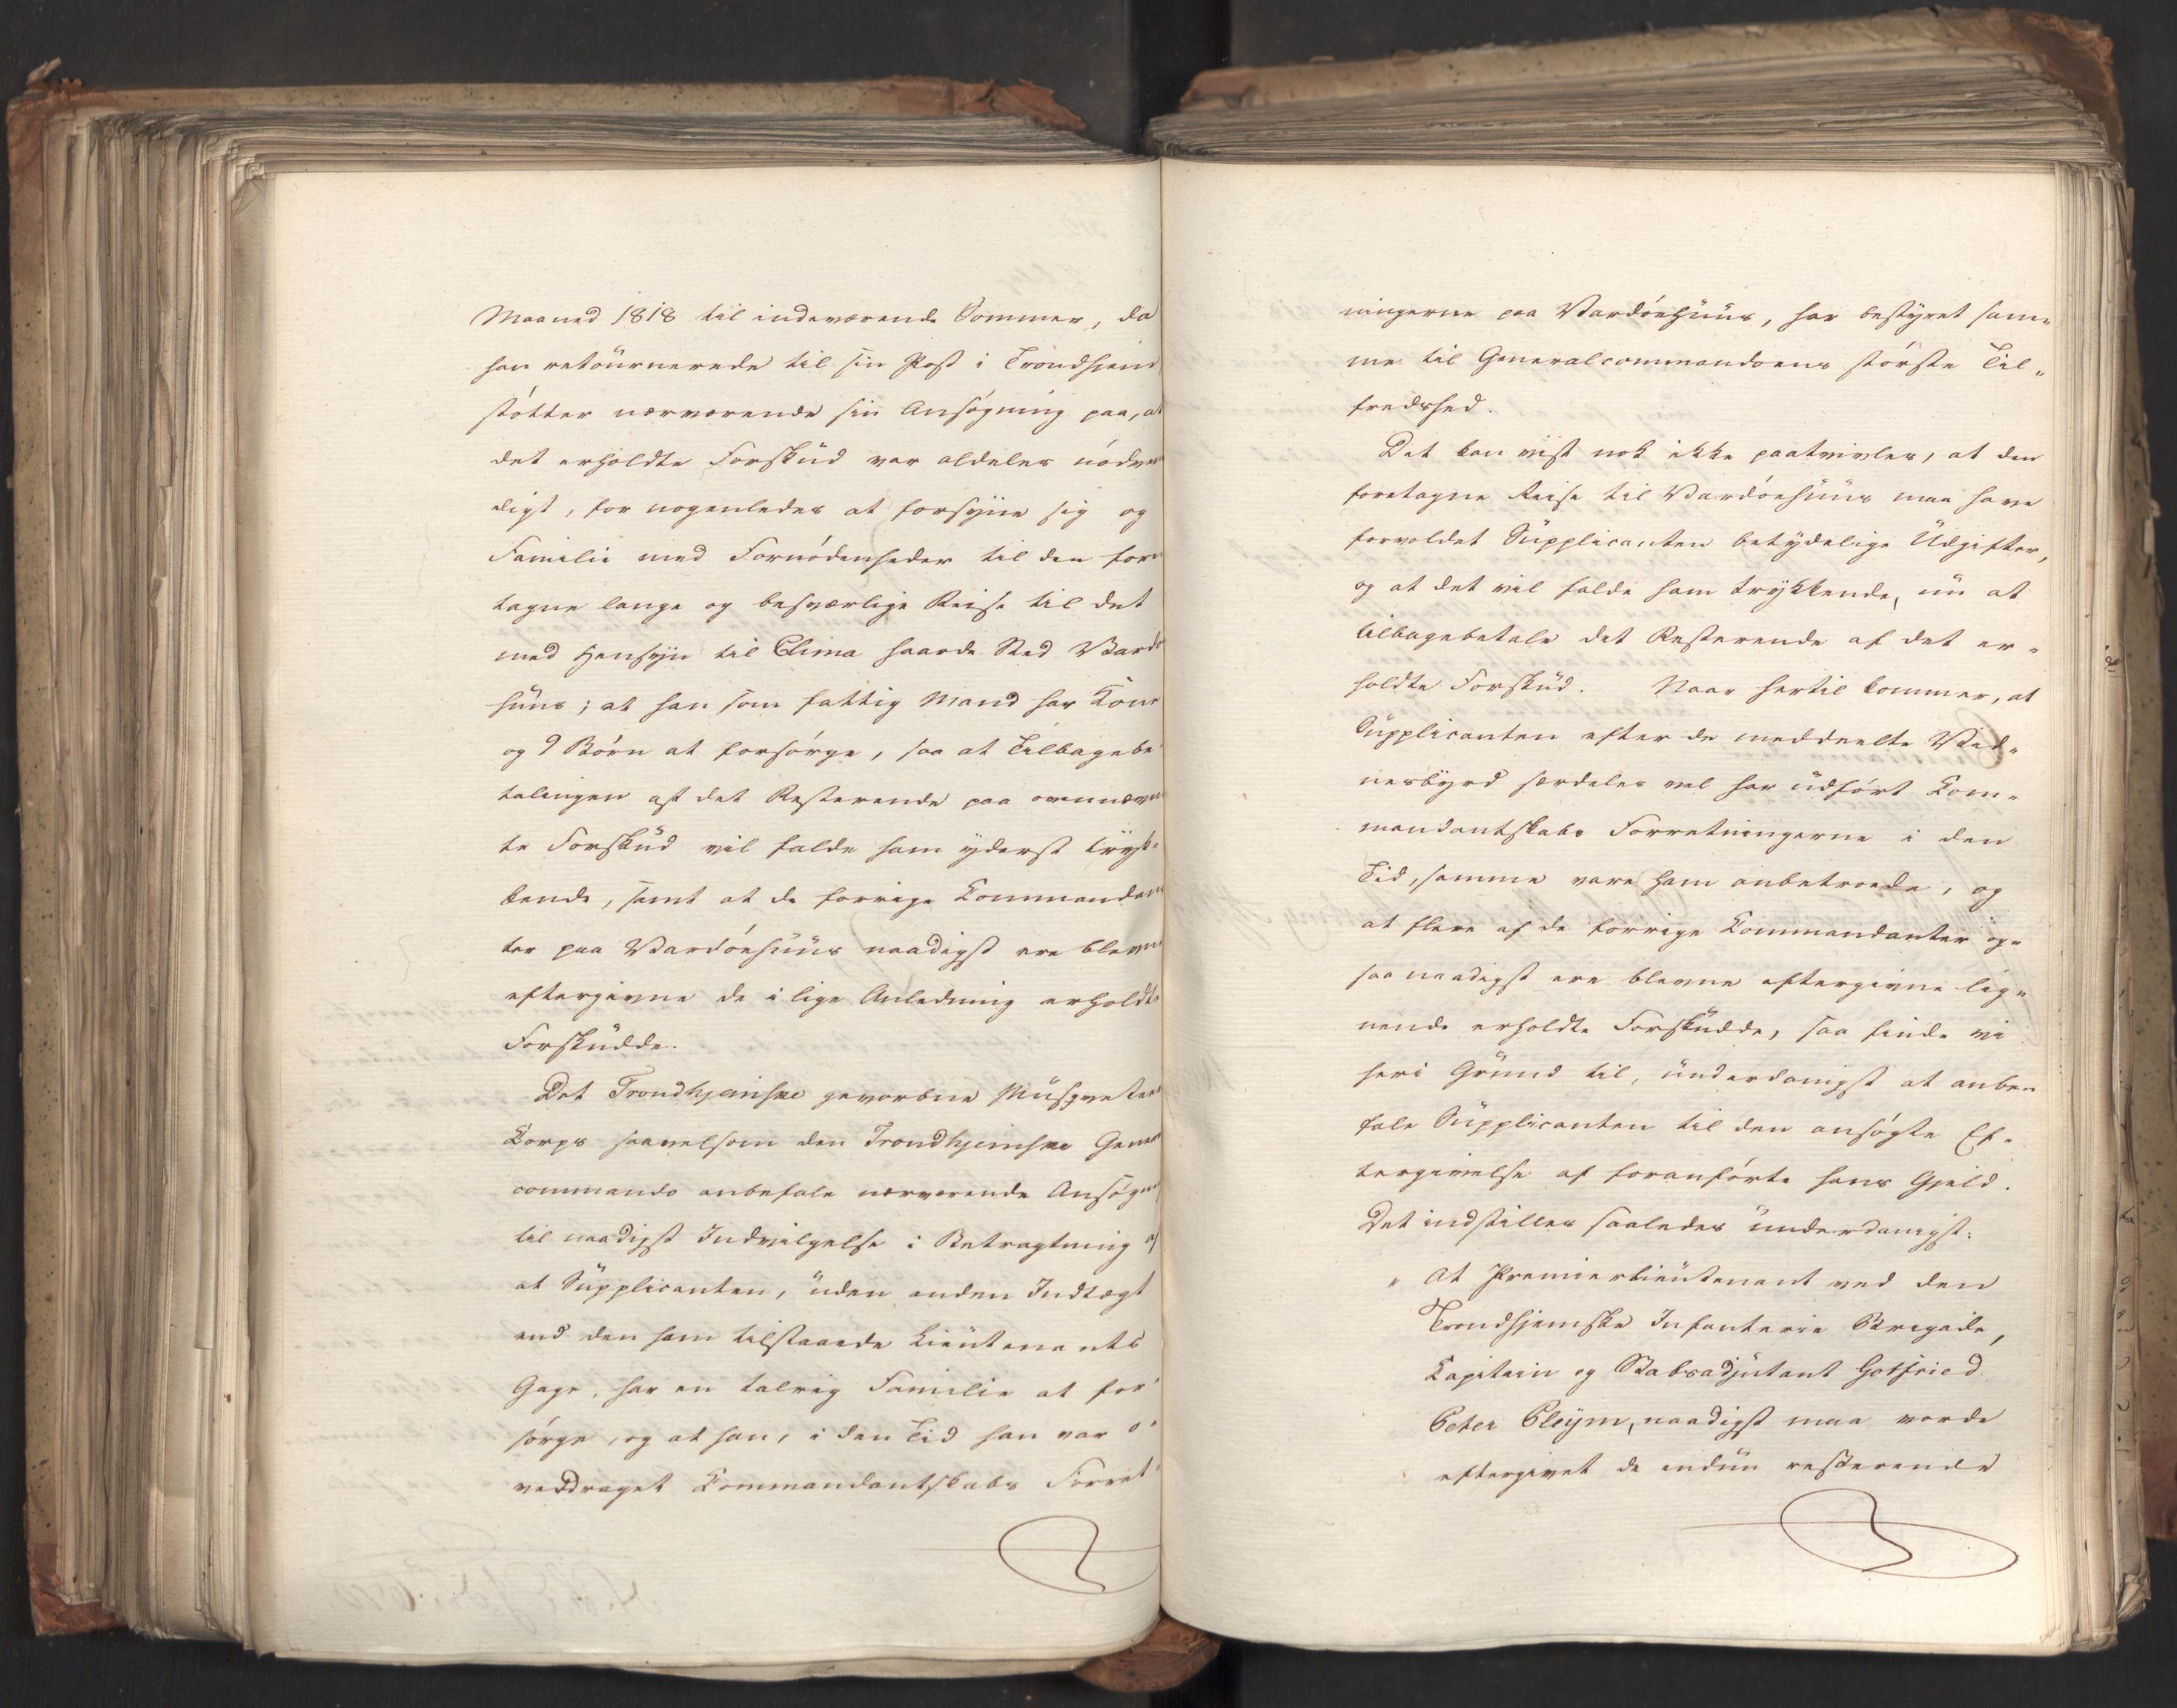 Maaned 1818 til indeværende Sommer, da
han retournerede til sin Post i Trondhjem
støtter nærværende sin Ansøgning paa, at
det erholdte Forskud var aldeles nødven
digt, for nogenledes at forsyne sig og
Familie med Fornødenheder til den fore
tagne lange og besværlige Reise til det
med Hensyn til Clima haarde Sted Vardø
huus; at han som fattig Mand har Kone
og 9 Børn at forsørge, saa at Tilbagebe-
talingen af det Resterende paa ovennævn
te Forskud vil falde ham yderst tryk-
kende, samt at de forrige Commandan
ter paa Vardöehuus naadigst ere blevne
eftergivne de i lige Anledning erholdte
Forskudde.
Det Trondhjemske gevorbne Musqueteer
Corps saavelsom den Trondhjemske General
commando anbefale nærværende Ansøgning
til naadigst Indvilgelse i Betragtning af
at Supplicanten, uden anden Indtægt
end den ham tilstaaede Lieutenants
Gage, har en talrig Familie at for-
sørge, og at han, i den Tid han var o-
verdraget Commandantskabs Forret-
ningerne paa Vardöehuus, har bestyret sam-
me til Generalcommandoens største Til-
fredshed.
Det kan vist nok ikke paatvivles, at den
foretagne Reise til Vardöehuus maa have
forvoldet Supplicanten betydelige Udgifter,
og at det vil falde ham trykkende, nu at
tilbagebetale det Resterende af det er-
holdte Forskud. Naar hertil kommer, at
Supplicanten efter de meddeelte Vid-
nesbyrd særdeles vel har udført Com-
mandantskabs Forretningerne i den
Tid, samme vare ham anbetroede, og
at flere af de forrige Commandanter og-
saa naadigst ere blevne eftergivne lig-
nende erholdte Forskudde, saa finde vi
heri Grund til, underdanigst at anbe-
fale Supplicanten til den ansøgte Ef-
tergivelse af foranførte hans Gjeld.
Det indstilles saaledes underdanigst:
" At Premierlieutenant ved den
Trondhjemske Infanterie Brigade,
Capitain og Stabsadjutant Gotfried
Peter Pleym, naadigst maa vorde
eftergivet de endnu resterende